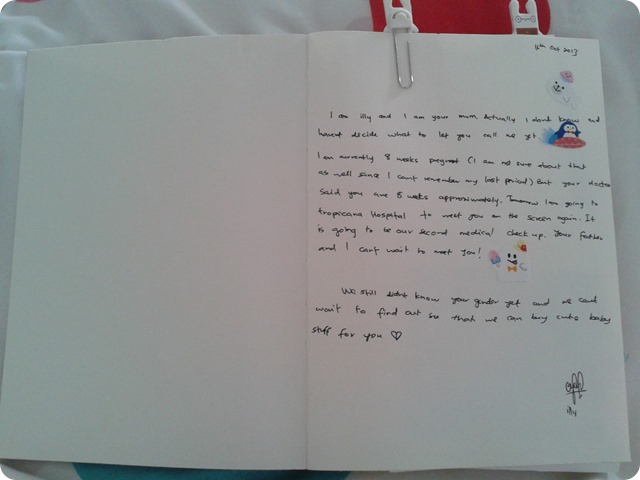 11th Oct 2013
I am illy and I am your mum. Actually I dont know and
havent decide what to let you call me yet.
I am currently 8 weeks pregnant (I am not sure about that
as well since I cant remember my last period) But your doctor
said you are 8 weeks approximately. Tomorrow I am going to
tropicana Hospital to meet you on the screen again. It
is going to be our second medical check up. Your father
and I cant wait to meet you!
We still didnt know your gender yet and we cant
wait to find out so that we can buy cute baby
stuff for you ♡
illy